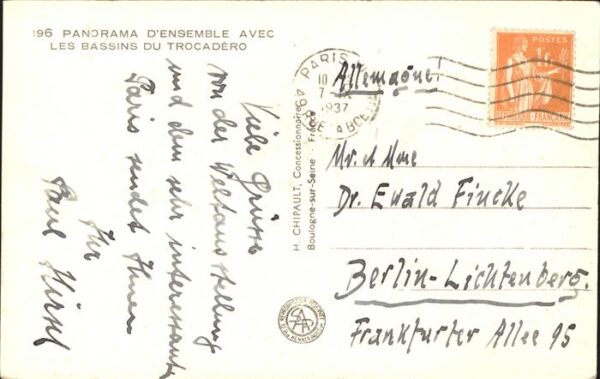 196 PANORAMA D'ENSEMBLE AVEC
LES BASSINS DU TROCADÉRO
Viele Grüsse
von der Weltausstellung
und dem sehr interessanten
Paris sendet Ihnen
Ihr
Paul
H. CHIPAULT, Concessionnaire
Boulogne-sur-Seine - France
PARIS
10
7
1937
POSTES
1F
Allemagne!
Mr. et Mme
Dr. Ewald Fincke
Berlin-Lichtenberg.
Frankfurter Allee 95